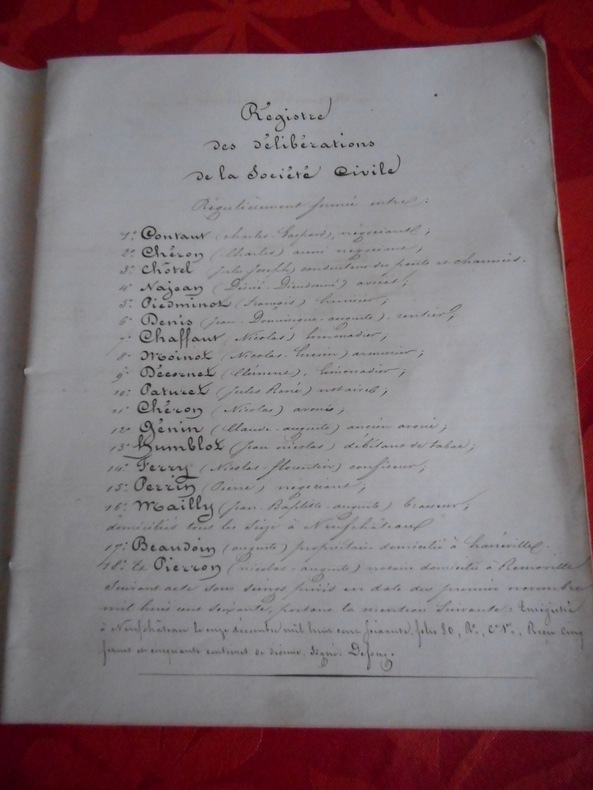 Registre
des délibérations
de la Société Civile
Régulièrement formée entre :
1º Contaut (Charles Gaspard), négociant ;
2º Chéron (Charles) aussi négociant ;
3º Chôtel (Jules Joseph) conducteur des ponts et chaussées.
4º Najean (Dieudonné) avoué ;
5º Piedminot (François) ;
6º Denis (Jean-Dominique-auguste) rentier ;
7º Chaffaut (Nicolas) limonadier ;
8º Moinot (Nicolas-Lucien) armurier ;
9º Décornet (Clément), limonadier ;
10º Paturet (Jules René) notaire ;
11º Chéron (Nicolas) avoué ;
12º Génin (Claude-auguste) ancien avoué ;
13º Humblot (Jean nicolas) débitant de tabac ;
14º Ferry (Nicolas-florentin) confiseur ;
15º Perrin (Pierre) négociant ;
16º Mailly (Jean-Baptiste-auguste) brasseur ;
domiciliés tous les seize à Neufchâteau
17º Beaudoin (auguste) propriétaire domicilié à
18º et Pierron (nicolas-auguste) notaire domicilié à Removille
suivant acte sous seings privés en date des premier novembre
mil huit cent soixante, portant la mention suivante : Enregistré
à Neufchâteau le onze décembre mil huit cent soixante, folio 80, Rº, Cº 1º, Reçu cinq
francs et cinquante centimes de décime. Signé :